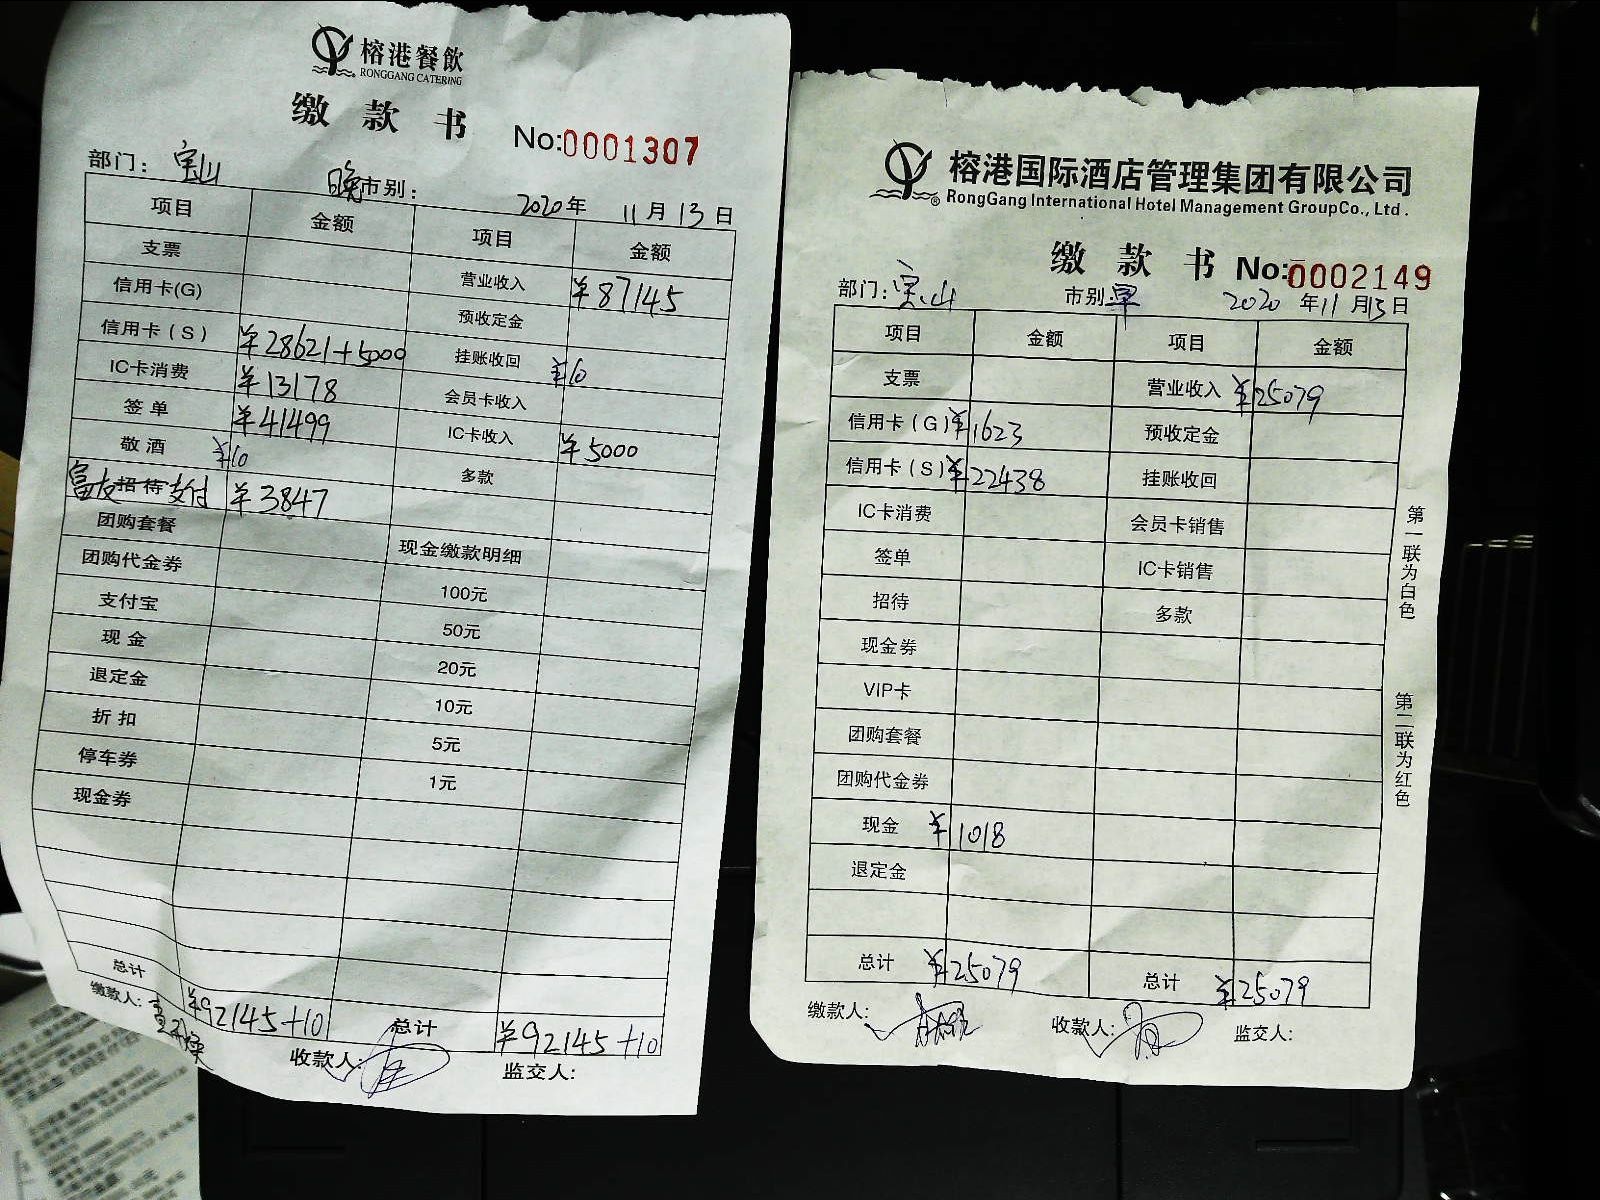 榕港餐飲
RONGGANG CATERING
缴款书
No:0001307
部门: 宝山 晚市别: 2020年 11月13日
项目 金额 项目 金额
支票 营业收入 ¥87145
信用卡(G) 预收定金
信用卡(S) ¥28621+5000 挂账收回 ¥10
IC卡消费 ¥13178 会员卡收入
签单 ¥41499 IC卡收入 ¥5000
敬酒 ¥10 多款
富友招待支付 ¥3847
团购套餐 现金缴款明细
团购代金券 100元
支付宝 50元
现金 20元
退定金 10元
折扣 5元
停车券 1元
现金券
总计 ¥92145+10 总计 ¥92145+10
缴款人: 收款人: 监交人:
榕港国际酒店管理集团有限公司
® RongGang International Hotel Management GroupCo., Ltd.
缴款书 No:0002149
部门: 宝山 市别: 早 2020年11月13日
项目 金额 项目 金额
支票 营业收入 ¥25079
信用卡(G) ¥1623 预收定金
信用卡(S) ¥22438 挂账收回
IC卡消费 会员卡销售
签单 IC卡销售
招待 多款
现金券
VIP卡
团购套餐
团购代金券
现金 ¥1018
退定金
总计 ¥25079 总计 ¥25079
缴款人: 收款人: 监交人:
第一联为白色
第二联为红色